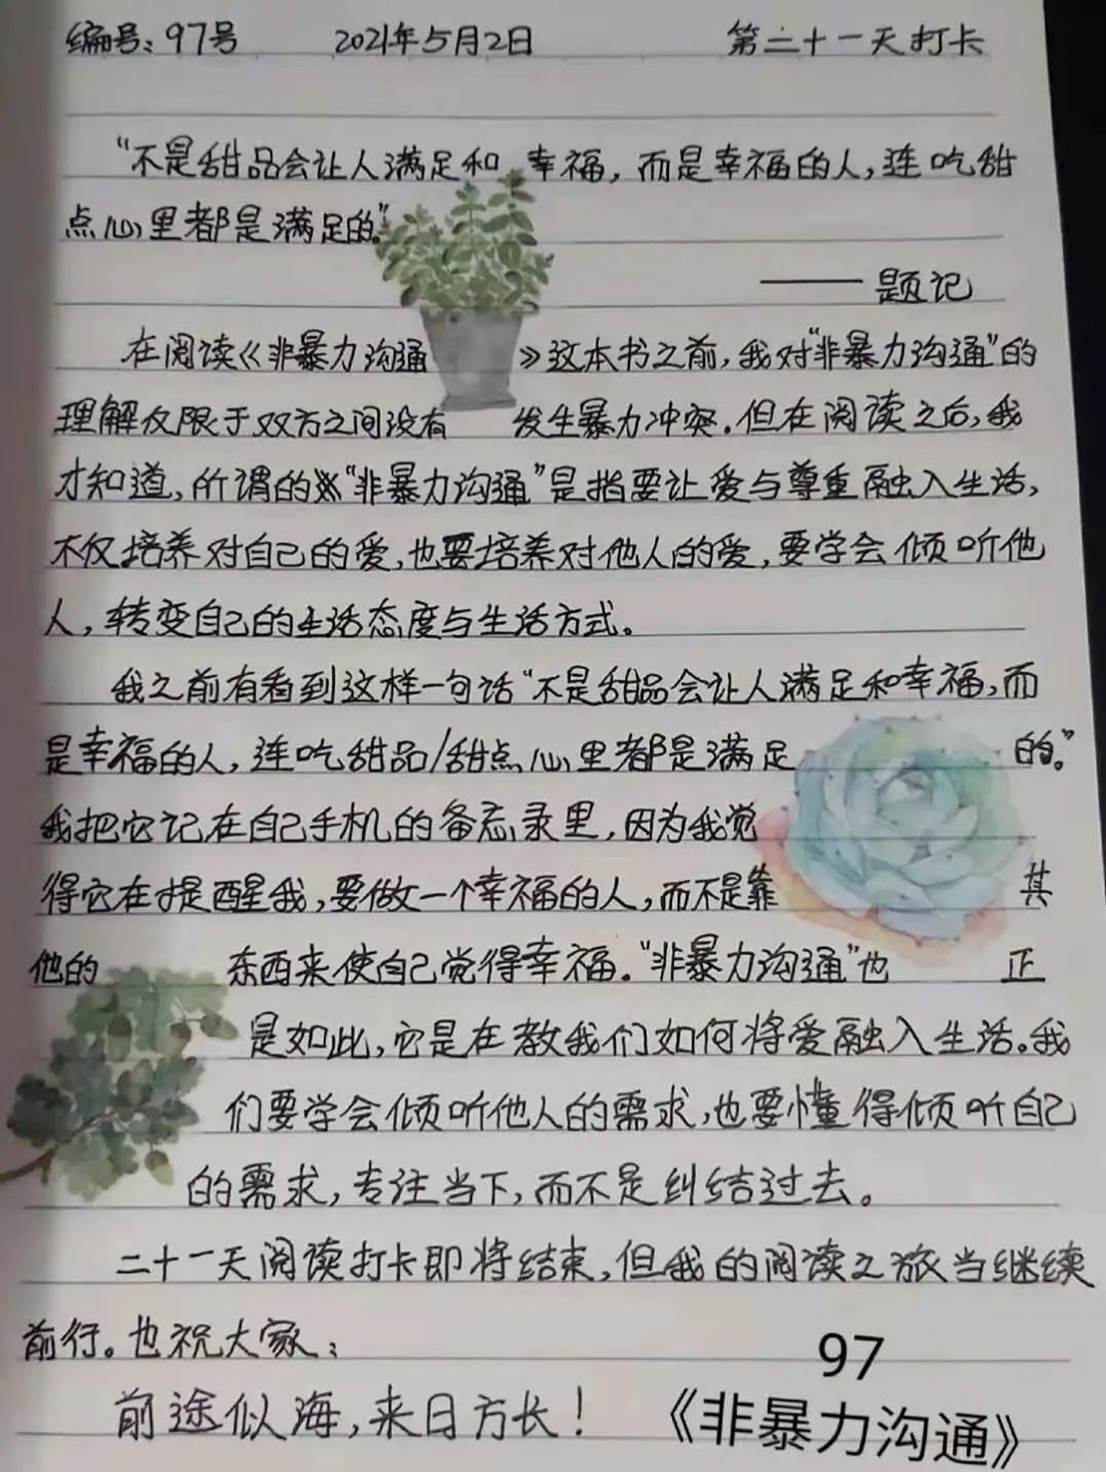 编号：97号 2021年5月2日 第二十一天打卡
“不是甜品会让人满足和幸福，而是幸福的人，连吃甜
点心里都是满足的。”
——题记
在阅读《非暴力沟通》这本书之前，我对“非暴力沟通”的
理解仅限于双方之间没有发生暴力冲突。但在阅读之后，我
才知道，所谓的“非暴力沟通”是指要让爱与尊重融入生活，
不仅培养对自己的爱，也要培养对他人的爱，要学会倾听他
人，转变自己的生活态度与生活方式。
我之前有看到这样一句话“不是甜品会让人满足和幸福，而
是幸福的人，连吃甜品/甜点心里都是满足的。”
我把它记在自己手机的备忘录里，因为我觉
得它在提醒我，要做一个幸福的人，而不是靠其
他的东西来使自己觉得幸福。“非暴力沟通”也正
是如此，它是在教我们如何将爱融入生活。我
们要学会倾听他人的需求，也要懂得倾听自己
的需求，专注当下，而不是纠结过去。
二十一天阅读打卡即将结束，但我的阅读之旅当继续
前行。也祝大家：
前途似海，来日方长！
97
《非暴力沟通》